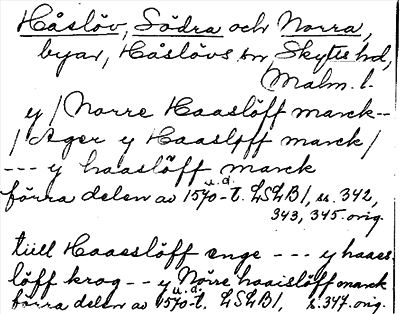 Håslöv, Södra och Norra,
byar, Håslövs sn, Skytts hd,
Malm. l.
y / Norre Haaslöff marck --
/ Ager y Haasløff marck /
--- y haaslöff marck
förra delen av 1570-t. u.d. LSLB1, ss. 342,
343, 345. orig.
tiill Haaeslöff enge --- y haaes
löff krog -- y Nörre haaislöff marck
förra delen av 1570-t. u.d. LSLB1, s. 347. orig.